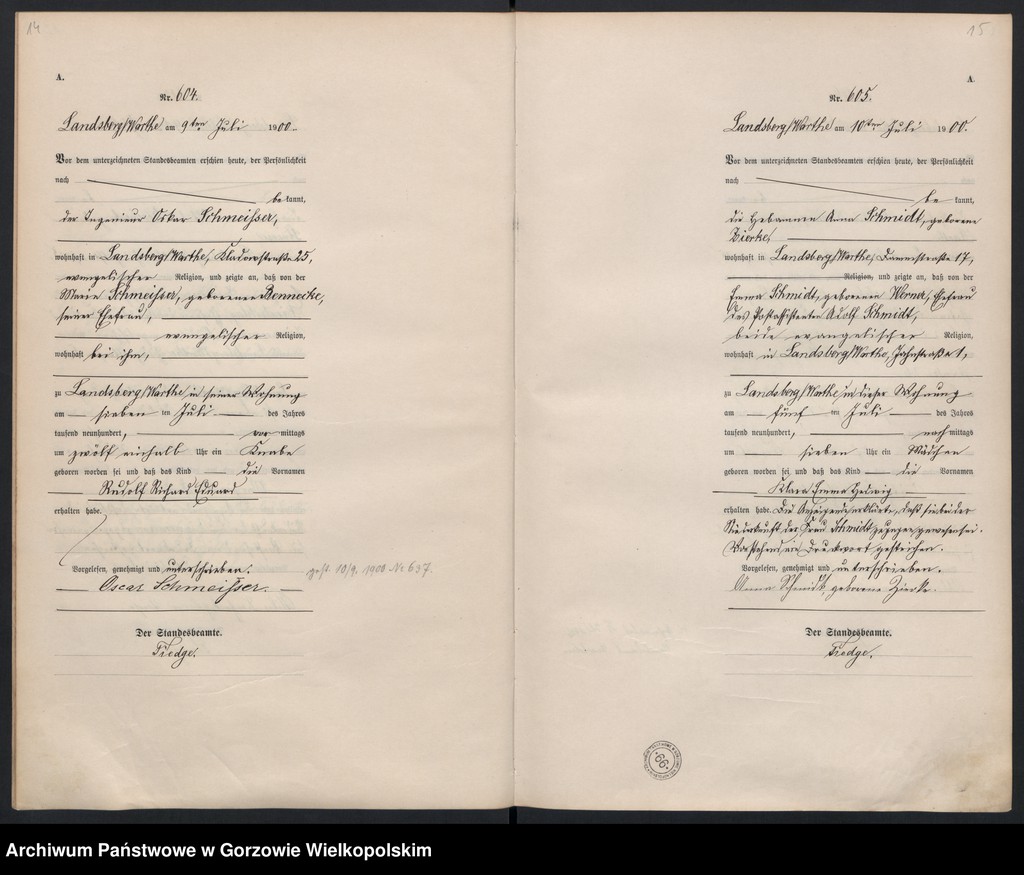 14
A.
Nr. 604.
Landsberg/Warthe am 9ten Juli 1900.
Vor dem unterzeichneten Standesbeamten erschien heute, der Persönlichkeit
nach
bekannt,
der Ingenieur Oskar Schmeisser,
wohnhaft in Landsberg/Warthe, Kladowstraße 25,
evangelischer Religion, und zeigte an, daß von der
Marie Schmeisser, geborenen Bennecke,
seiner Ehefrau,
evangelischer Religion,
wohnhaft bei ihm,
zu Landsberg/Warthe, in seiner Wohnung
am sieben ten Juli des Jahres
tausend neunhundert, vor mittags
um zwölf einhalb Uhr ein Knabe
geboren worden sei und daß das Kind die Vornamen
Rudolf Richard Eduard
erhalten habe.
Vorgelesen, genehmigt und unterschrieben.
Oscar Schmeisser.
gest. 10/9. 1900 Nr 637.
Der Standesbeamte.
Fiedge.
15
A
Nr. 605.
Landsberg/Warthe am 10ten Juli 1900.
Vor dem unterzeichneten Standesbeamten erschien heute, der Persönlichkeit
nach
bekannt,
die Hebamme Anna Schmidt, geborene
Zierke,
wohnhaft in Landsberg/Warthe, Dammstraße 17,
Religion, und zeigte an, daß von der
Emma Schmidt, geborenen Werner, Ehefrau
des Postassistenten Adolf Schmidt,
beide evangelischer Religion,
wohnhaft in Landsberg/Warthe, Jahnstraße 1,
zu Landsberg/Warthe, in dieser Wohnung
am fünf ten Juli des Jahres
tausend neunhundert, nachmittags
um sieben Uhr ein Mädchen
geboren worden sei und daß das Kind die Vornamen
Klara Emma Hedwig
erhalten habe. Die Anzeigende erklärte, daß sie bei der
Niederkunft der Frau Schmidt zugegen gewesen sei.
Vorstehend ein Druckwort gestrichen.
Vorgelesen, genehmigt und unterschrieben.
Anna Schmidt, geborene Zierke.
Der Standesbeamte.
Fiedge.
99
Archiwum Państwowe w Gorzowie Wielkopolskim